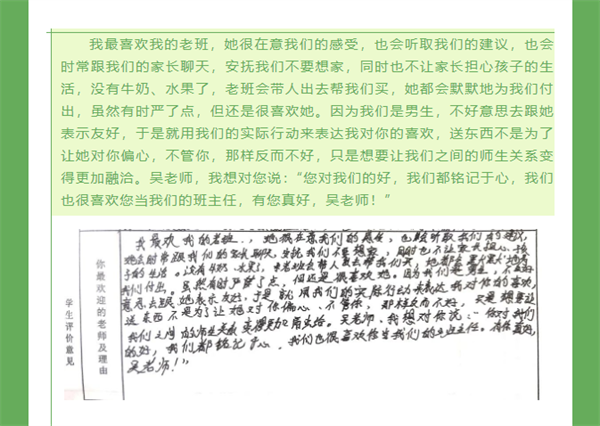 我最喜欢我的老班，她很在意我们的感受，也会听取我们的建议，也会
时常跟我们的家长聊天，安抚我们不要想家，同时也不让家长担心孩子的生
活，没有牛奶、水果了，老班会带人出去帮我们买，她都会默默地为我们付
出，虽然有时严了点，但还是很喜欢她。因为我们是男生，不好意思去跟她
表示友好，于是就用我们的实际行动来表达我对你的喜欢，送东西不是为了
让她对你偏心，不管你，那样反而不好，只是想要让我们之间的师生关系变
得更加融洽。吴老师，我想对您说：“您对我们的好，我们都铭记于心，我们
也很喜欢您当我们的班主任，有您真好，吴老师！”
学生评价意见
你最欢迎的老师及理由
我最喜欢我的老班，她很在意我们的感受，也会听取我们的建议，
也会时常跟我们的家长聊天，安抚我们不要想家，同时也不让家长担心孩
子的生活。没有牛奶、水果了，老班会带人出去帮我们买，她都会默默地为
我们付出。虽然有时严了点，但还是很喜欢她。因为我们是男生，不好
意思去跟她表示友好，于是就用我们的实际行动来表达我对你的喜欢，
送东西不是为了让她对你偏心、不管你，那样反而不好，只是想要让
我们之间的师生关系变得更加融洽。吴老师，我想对你说：“你对我们
的好，我们都铭记于心，我们也很喜欢您当我们的班主任。有您真好，
吴老师！”